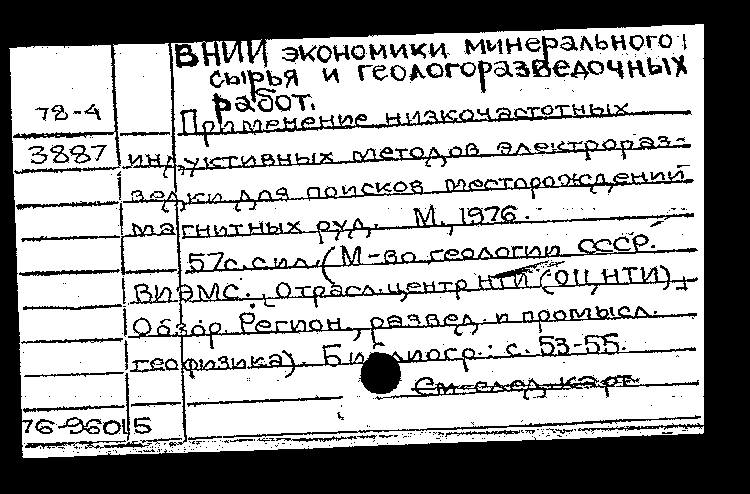 ВНИИ экономики минерального
сырья и геологоразведочных
работ.
78-4
Применение низкочастотных
3887 индуктивных методов электрораз-
ведки для поисков месторождений
магнитных руд. М., 1976.
57с. с ил. (М-во геологии СССР.
ВИЭМС. Отрасл. центр НТИ (ОЦНТИ).
Обзор. Регион., развед. и промысл.
геофизика). Библиогр.: с. 53-55.
См. след. карт.
76-96015